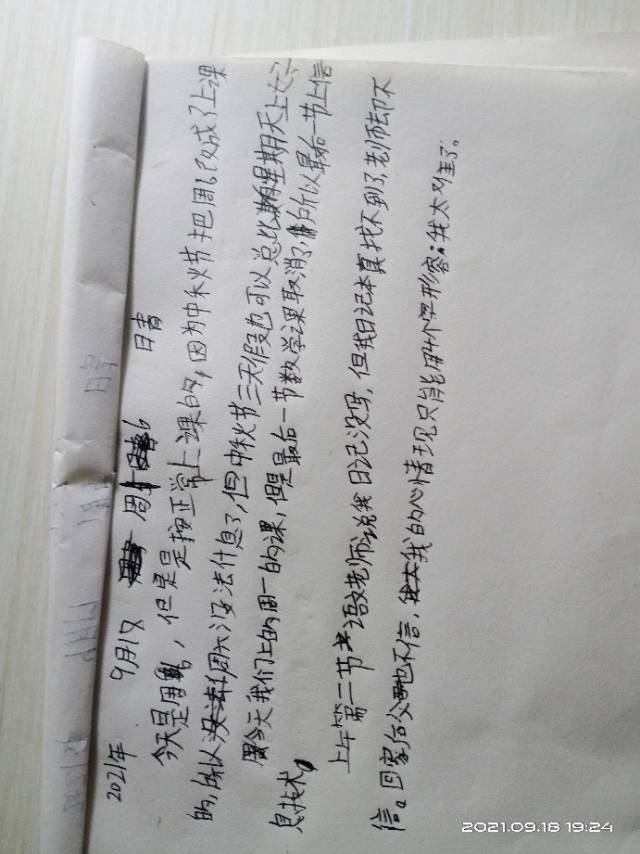 2021年 9月18 周六 日 晴
今天是周六，但是是按正常上课的，因为中秋节把周六改成了上课
的，所以周六没法休息了，但中秋节三天假也可以总比星期天上女子
今天我们上的周一的课，但是最后一节数学课取消了，所以最后一节上信
息技术。
上午第二节语文老师说我日记没写，但我日记本真找不到了，老师却不
信。回家后父也不信，我的心情现只能用4个字形容：我太难了。
2021.09.18 19:24